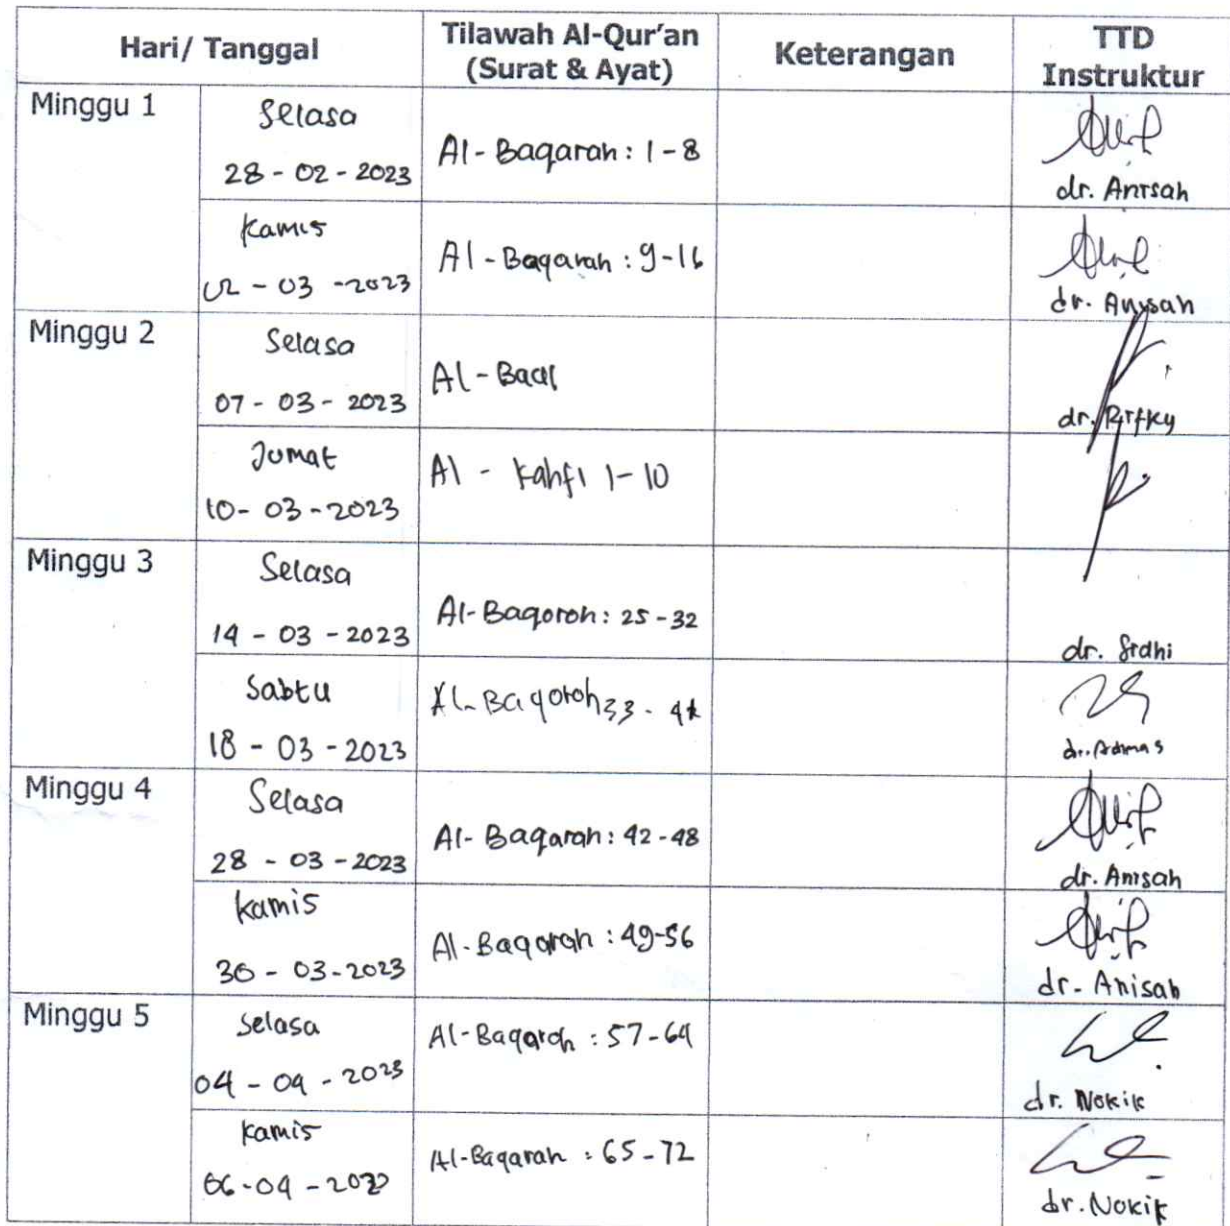 Hari/ Tanggal
Tilawah Al-Qur'an
(Surat & Ayat)
Keterangan
TTD
Instruktur
Minggu 1
Selasa
28 - 02 - 2023
Al - Baqarah : 1 - 8
dr. Anisah
Kamis
02 - 03 - 2023
Al - Baqarah : 9 - 16
dr. Anysah
Minggu 2
Selasa
07 - 03 - 2023
Al - Baal
dr. Rifky
Jumat
10 - 03 - 2023
Al - Kahfi 1 - 10
Minggu 3
Selasa
14 - 03 - 2023
Al-Baqoroh : 25 - 32
dr. Sidhi
Sabtu
18 - 03 - 2023
Al-Baqoroh 33 -
dr. Admas
Minggu 4
Selasa
28 - 03 - 2023
Al- Baqarah : 42 - 48
dr. Anisah
Kamis
30 - 03 - 2023
Al-Baqarah : 49-56
dr. Anisah
Minggu 5
Selasa
04 - 04 - 2023
Al-Baqarah : 57-64
dr. Nokik
Kamis
06 - 04 -
Al-Baqarah : 65 - 72
dr. Nokik